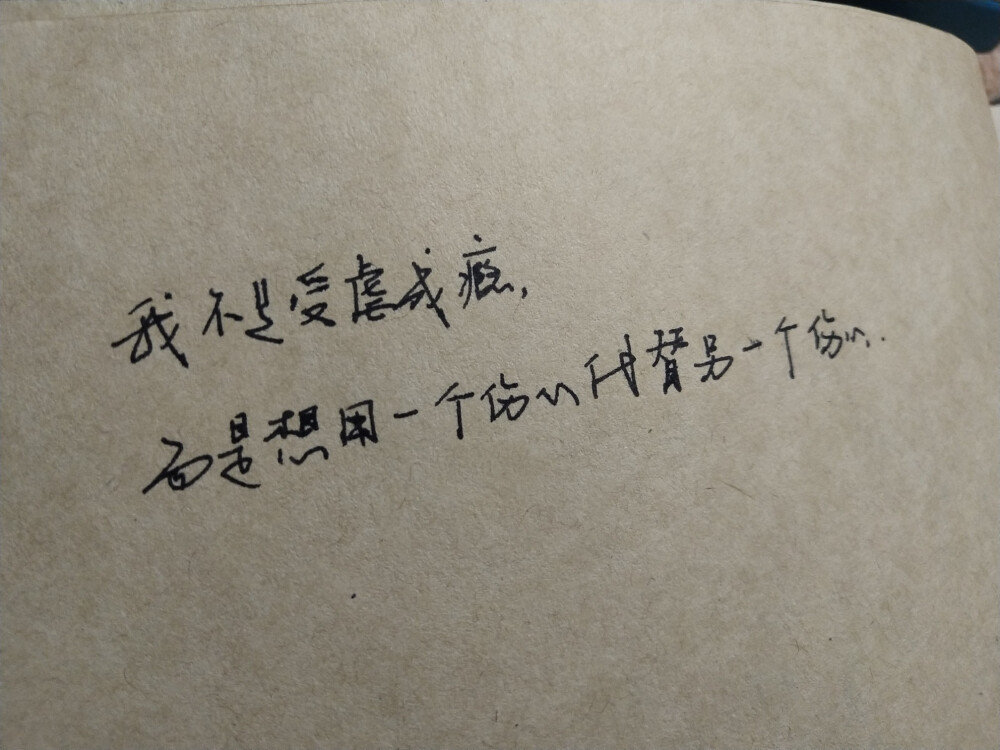 我不是受虐成瘾,
而是想用一个伤心代替另一个伤心.